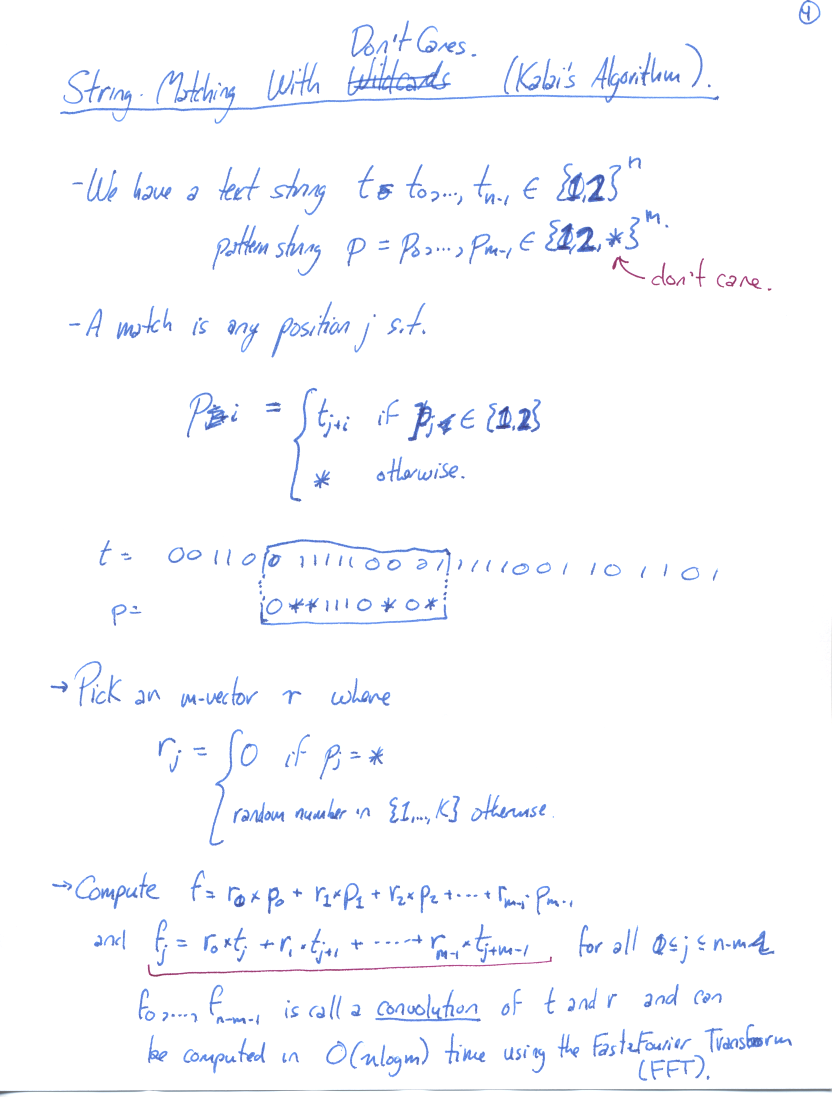 4
Don't Cares.
String Matching With Wildcards (Kalai's Algorithm).
- We have a text string t = t₀,..., tₙ₋₁ ∈ {1,2}ⁿ
pattern string p = p₀,..., pₘ₋₁ ∈ {1,2,*}ᵐ.
don't care.
- A match is any position j s.t.
pᵢ = { tⱼ₊ᵢ if pᵢ ∈ {1,2}
* otherwise.
t = 0 0 1 1 0 0 1 1 1 1 1 0 0 0 1 1 1 1 1 0 0 1 1 0 1 1 0 1
p = 0 * * 1 1 1 0 * 0 *
→ Pick an m-vector r where
rⱼ = { 0 if pⱼ = *
random number in {1,..., K} otherwise.
→ Compute f = r₀ × p₀ + r₁ × p₁ + r₂ × p₂ + ... + rₘ₋₁ · pₘ₋₁
and fⱼ = r₀ × tⱼ + r₁ · tⱼ₊₁ + ... + rₘ₋₁ · tⱼ₊ₘ₋₁ for all 0 ≤ j ≤ n-m-1
f₀,..., fₙ₋ₘ₋₁ is call a convolution of t and r and can
be computed in O(n log m) time using the Fast Fourier Transform
(FFT).